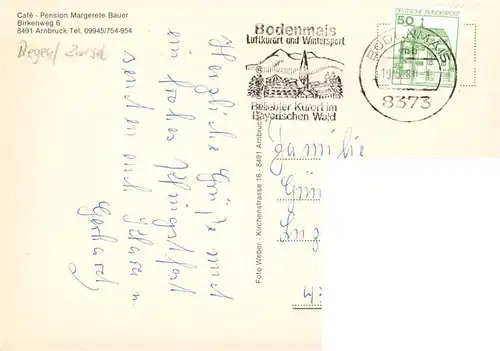 Café - Pension Margerete Bauer
Birkenweg 6
8491 Arnbruck Tel. 09945/754-954
Bodenmais
Luftkurort und Wintersport
Beliebter Kurort im
Bayerischen Wald
DEUTSCHE BUNDESPOST
50
BODENMAIS
8373
Herzliche Grüße und
ein frohes Pfingstfest
senden euch
Gerhard
Foto Weber - Kirchenstrasse 16 - 8491 Arnbruck
Familie
Gün